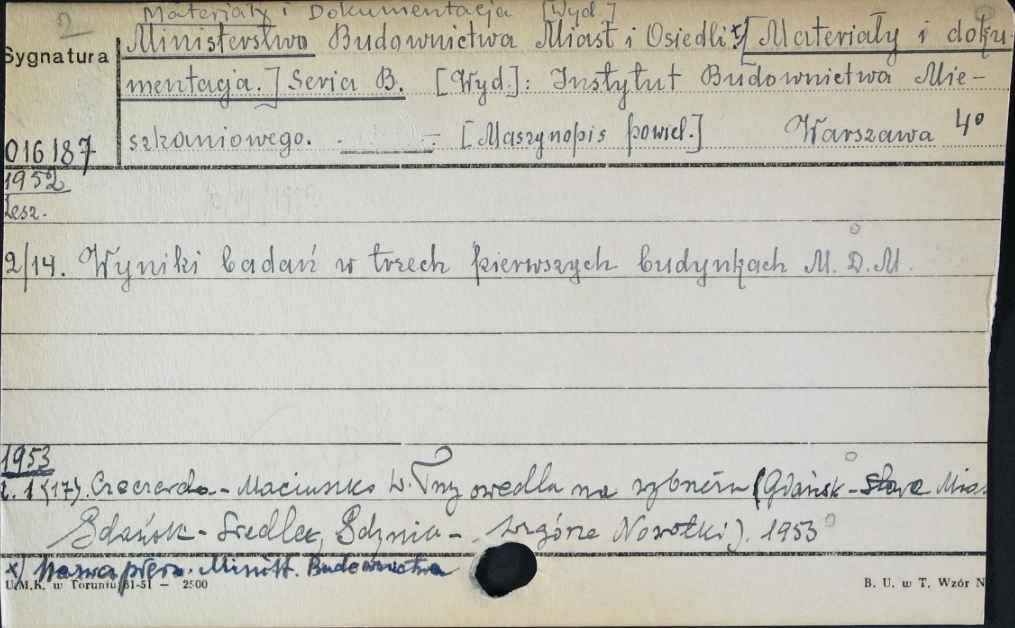 2 Materiały i Dokumentacja [Wyd.]
Ministerstwo Budownictwa Miast i Osiedli x) [Materiały i doku-
Sygnatura
mentacja.] Seria B. [Wyd.]: Instytut Budownictwa Mie-
szkaniowego. — [Maszynopis powiel.] Warszawa 4°
016187
1952
Zesz.
2/14. Wyniki badań w trzech pierwszych budynkach M.D.M.
1953
z. 1 (17). Czeczerda - W. Trzy osedla na (Gdańsk - Stare Mia
Gdańsk - Siedlce, Gdynia - Wzgórze Nowotki). 1953
x) Nazwa pierw. Minist. Budownictwa
U.M.K. w Toruniu 61-51 — 2500
B. U. w T. Wzór N